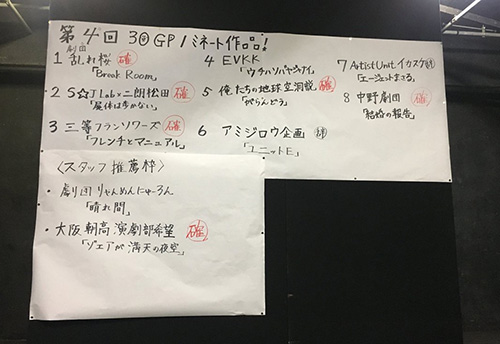 第4回 30GPノミネート作品!
1 劇団 乱れ桜 確
「Break Room」
2 S☆J Lab×二朗松田 確
「屍体は歩かない」
3 三等フランソワーズ 確
「フレンチとマニュアル」
4 EVKK
「ウチハソバヤジャナイ」
5 俺たちの地球空洞説 確
「がらんどう」
6 アミジロウ企画
「ユニットE」
7 Artist Unit イカスケ
「エージェントまさる」
8 中野劇団 確
「結婚の報告」
〈スタッフ推薦枠〉
・劇団りゃんめんにゅーろん
「晴れ間」
・大阪朝高演劇部希望 確
「が満天の夜空」